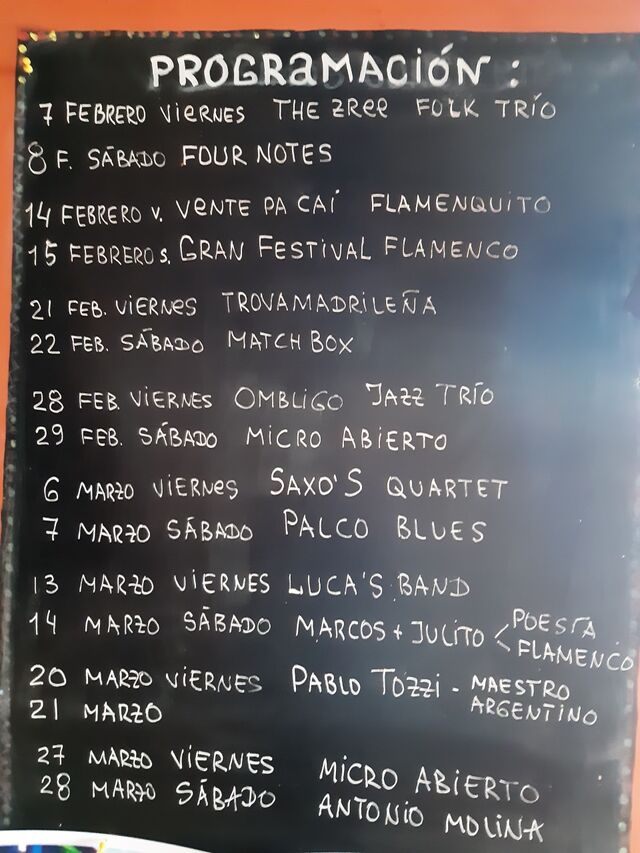 PROGRAMACIÓN :
7 FEBRERO VIERNES THE ZREE FOLK TRÍO
8 F. SÁBADO FOUR NOTES
14 FEBRERO V. VENTE PA CAÍ FLAMENQUITO
15 FEBRERO S. GRAN FESTIVAL FLAMENCO
21 FEB. VIERNES TROVAMADRILEÑA
22 FEB. SÁBADO MATCH BOX
28 FEB. VIERNES OMBLIGO JAZZ TRÍO
29 FEB. SÁBADO MICRO ABIERTO
6 MARZO VIERNES SAXO'S QUARTET
7 MARZO SÁBADO PALCO BLUES
13 MARZO VIERNES LUCA'S BAND
14 MARZO SÁBADO MARCOS + JULITO < POESÍA
FLAMENCO
20 MARZO VIERNES PABLO TOZZI - MAESTRO
21 MARZO ARGENTINO
27 MARZO VIERNES MICRO ABIERTO
28 MARZO SÁBADO ANTONIO MOLINA